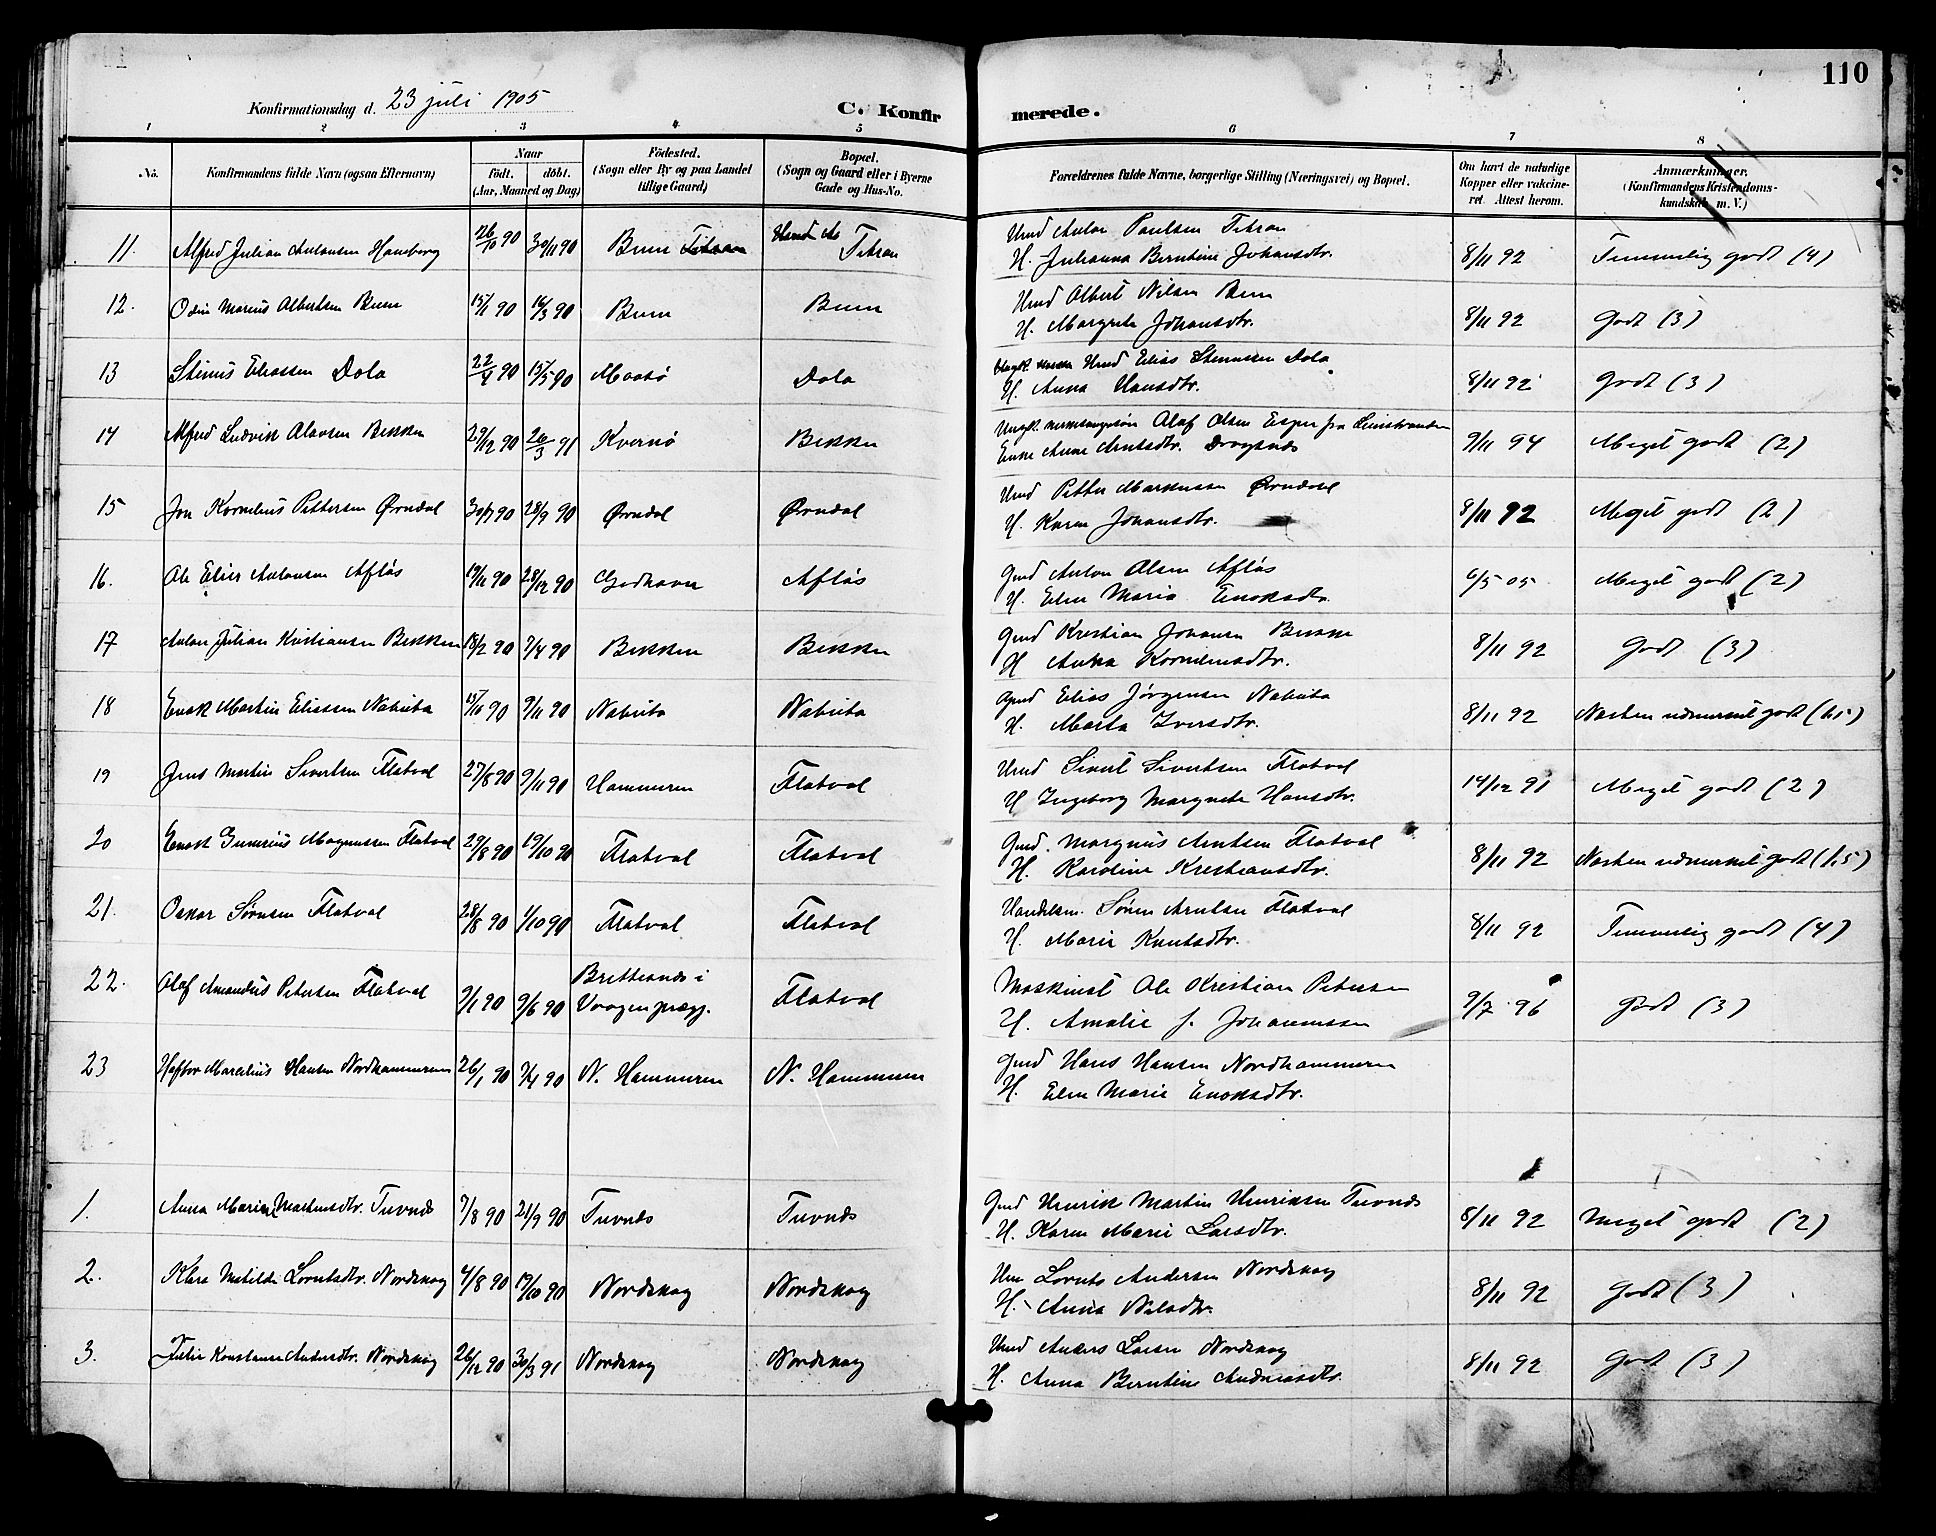 110
Konfirmationsdag d. 23 juli 1905
C. Konfirmerede.
1 2 3 4 5 6 7 8
No. Konfirmandens fulde Navn (ogsaa Efternavn) Naar födt. döbt. (Aar, Maaned og Dag) Födested. (Sogn eller By og paa Landet tillige Gaard) Bopæl. (Sogn og Gaard eller i Byerne Gade og Hus-No. Forældrenes fulde Navne, borgerlige Stilling (Næringsvei) og Bopæl. Om havt de naturlige Kopper eller vakcineret. Attest herom. Anmærkninger. (Konfirmandens Kristendomskundskab m. V.)
11. Alfred Julian Antonsen Hamborg 26/10 90 30/11 90 Buin Titran Titran Umd Anton Paulsen Titran
H. Julianna Berntine Johansdtr. 8/11 92 Temmelig godt (4)
12. Odin Marius Albertsen Buin 15/1 90 16/3 90 Buin Buin Umd Albert Nilsen Buin
H. Margrete Johansdtr. 8/11 92 Godt (3)
13 Stinius Eliassen Dola 22/4 90 15/5 90 Maasø Dola Umd Elias Dola
H. Anna Hansdtr. 8/11 92 Godt (3)
14 Alfred Ludvik Olavsen Bekken 29/12 90 26/3 91 Kvernø Bekken Olaf Olsen Esper fra Leinstranden
Enke Anne Arntsdtr. Dragsnes 9/11 94 Meget godt (2)
15 Jon Kornelius Pettersen Ørndal 30/7 90 28/9 90 Ørndal Ørndal Umd Petter Markussen Ørndal
H. Karen Johansdtr. 8/11 92 Meget godt (2)
16. Ole Elier Antonsen Afløs 19/11 90 28/12 90 Godhavn Afløs Gmd Anton Olsen Afløs
H. Elen Maria Enoksdtr. 6/5 05 Meget godt (2)
17 Anton Julian Kristiansen Bekken 18/2 90 7/4 90 Bekken Bekken Gmd Kristian Johansen Bekken
H Anna Korneliusdtr. 8/11 92 Godt (3)
18 Enok Martin Eliassen Nabeita 15/10 90 9/11 90 Nabeita Nabeita Gmd Elias Jørgensen Nabeita
H. Marta Iversdtr. 8/11 92 Næsten udmerket godt (1.5)
19 Jens Martin Sivertsen Flatval 27/8 90 9/11 90 Hammeren Flatval Umd Sivert Sivertsen Flatval
H Ingeborg Margrete Hansdtr. 14/12 91 Meget godt (2)
20 Enok Gunerius Magnussen Flatval 29/8 90 19/10 90 Flatval Flatval Gmd. Margnus Arntsen Flatval
H. Karoline Kristiansdtr. 8/11 92 Næsten udmerket godt (1.5)
21. Oskar Sørensen Flatval 28/8 90 1/10 90 Flatval Flatval Handelsm. Søren Arntsen Flatval
H. Marie Knutsdtr. 8/11 92 Temmelig godt (4)
22. Olaf Amandus Petersen Flatval 9/1 90 9/6 90 Brettesnes i Vaagen prægj. Flatval Maskinist Ole Kristian Petersen
H. Amalie f. Johannessen 9/7 96 Godt (3)
23 Haftor Marelius Hansen Nordhammeren 26/1 90 7/4 90 N. Hammeren N. Hammeren Gmd Hans Hansen Nordhammeren
H. Elen Marie Enoksdtr.
1. Anna Marie Tuvnes 7/8 90 21/9 90 Tuvnes Tuvnes Gmd Henrik Martin Henriksen Tuvnes
H. Karen Marie Larsdtr. 8/11 92 Meget godt (2)
2. Klara Matilde Lorntsdtr. Nordskag 4/8 90 19/10 90 Nordskag Nordskag Um Lornts Andersen Nordskag
H. Anna Nilsdtr. 8/11 92 Godt (3)
3. Julie Konstanse Andersdtr. Nordskag 26/12 90 30/3 91 Nordskag Nordskag Umd Anders Larsen Nordskag
H. Anna Berntine Andreasdtr. 8/11 92 Godt (3)